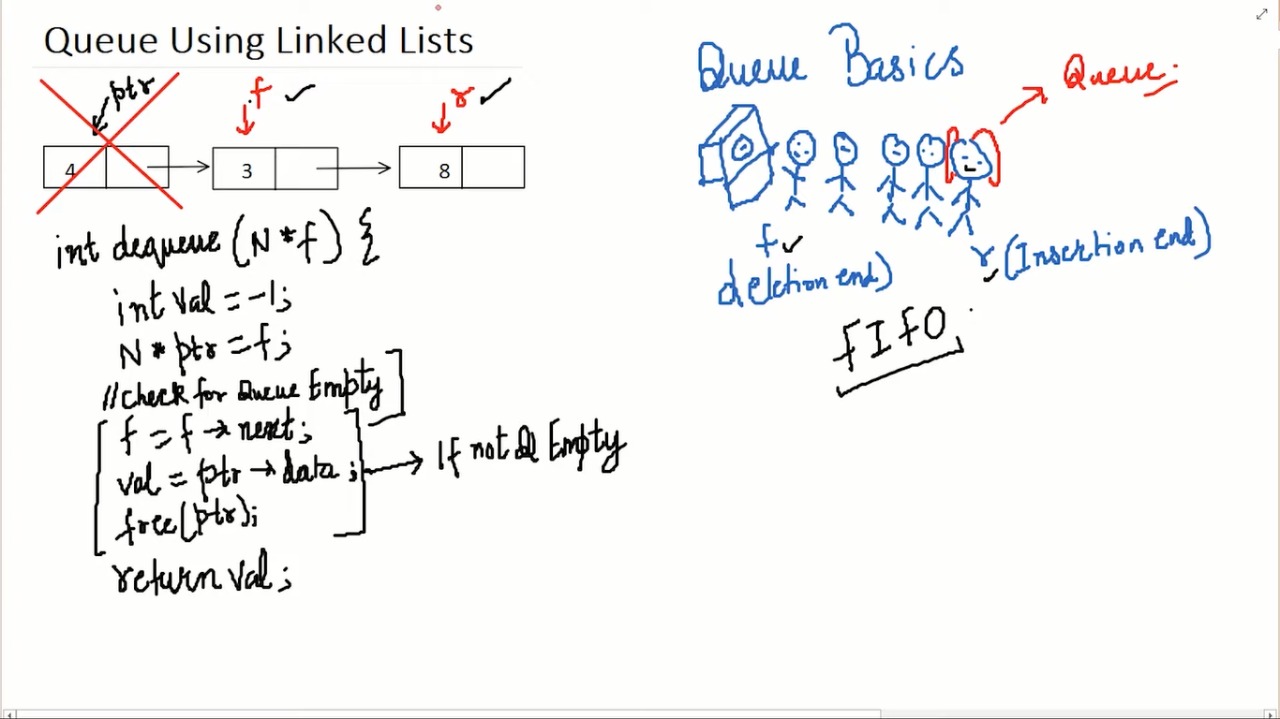 Queue Using Linked Lists
ptr
f
r
4
3
8
int dequeue (N *f) {
int val = -1;
N * ptr = f;
//check for Queue Empty
f = f → next;
val = ptr → data;
free(ptr);
If not Q Empty
return val;
Queue Basics
Queue.
f
deletion end)
r (Insertion end)
fIfO